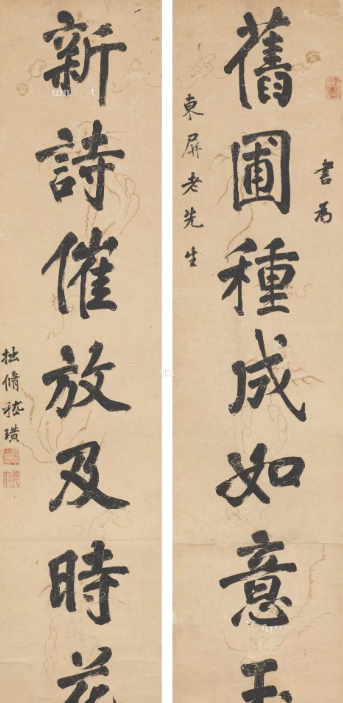 書為
舊圃種成如意玉
東屏老先生
新詩催放及時花
拙脩嵇璜